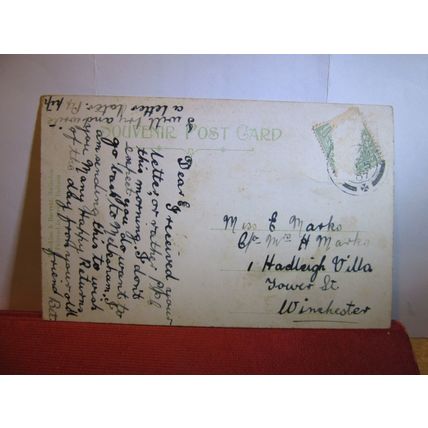 SOUVENIR POST CARD
Dear E, I received your
letter, or rather, P.P.C
this morning. I don't
expect you do want to
go back to Melksham. I
am sending this to wish
you Many Happy Returns
of the day from your old
friend Bet
I will try and write
a letter later.
Miss E Marks
C/o Mrs H Marks
1 Hadleigh Villa
Tower St
Winchester